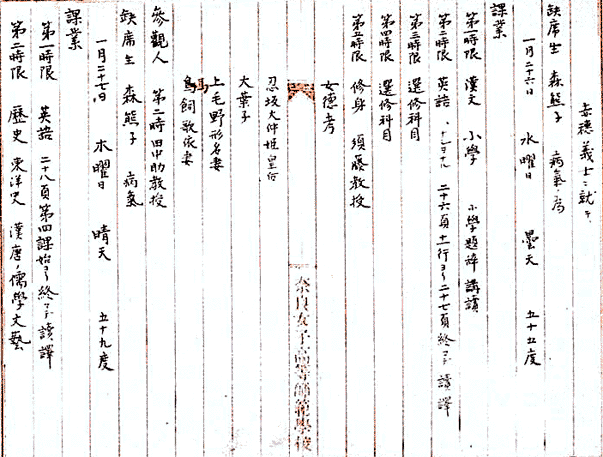 赤穂義士ニ就テ
缺席生 森熊子 病氣ノ為
一月二十六日 水曜日 曇天 五十五度
課業
第一時限 漢文 小學 小學題辞講讀
第二時限 英語 二十六頁十一行ヨリ二十七頁終マデ讀譯
第三時限 選修科目
第四時限 選修科目
第五時限 修身 須藤教授
女德考
奈良女子高等師範學校
忍坂大仲姫皇后
大葉子
上毛野形名妻
鳥飼歌依妻
參觀人 第二時田中助教授
缺席生 森熊子 病氣
一月二十七日 木曜日 晴天 五十九度
課業
第一時限 英語 二十八頁第四課始ヨリ終マデ讀譯
第二時限 歷史 東洋史 漢唐ノ儒學文藝